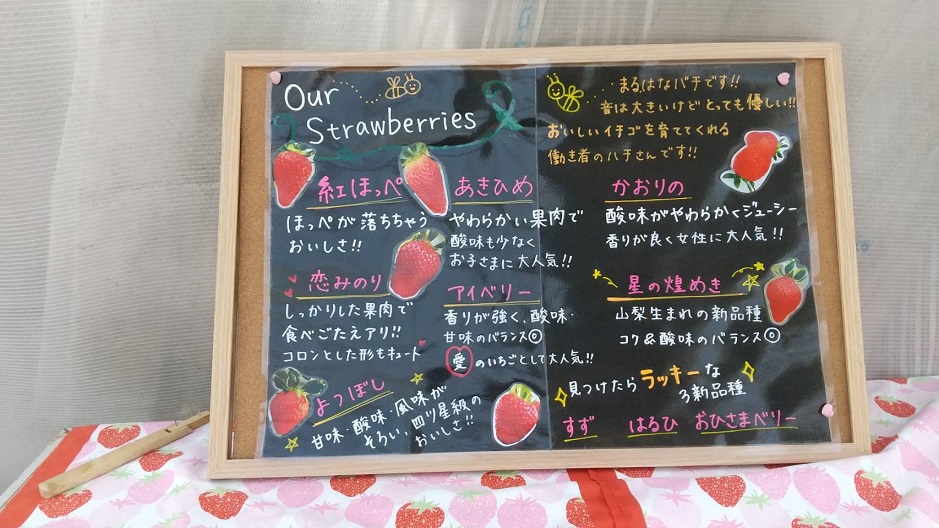 Our
Strawberries
紅ほっぺ
ほっぺが落ちちゃう
おいしさ!!
あきひめ
やわらかい果肉で
酸味も少なく
お子さまに大人気!!
恋みのり
しっかりした果肉で
食べごたえアリ!!
コロンとした形もキュート
アイベリー
香りが強く、酸味・
甘味のバランス◎
愛のいちごとして大人気!!
よつぼし
甘味・酸味・風味が
そろい、四ツ星級の
おいしさ!!
まるはなバチです!!
音は大きいけどとっても優しい!!
おいしいイチゴを育ててくれる
働き者のハチさんです!!
かおりの
酸味がやわらかくジューシー
香りが良く女性に大人気!!
星の煌めき
山梨生まれの新品種
コク&酸味のバランス◎
見つけたらラッキーな
3新品種
すず はるひ おひさまベリー